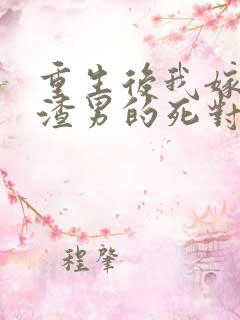 重生後我嫁
渣男的死對
程肇